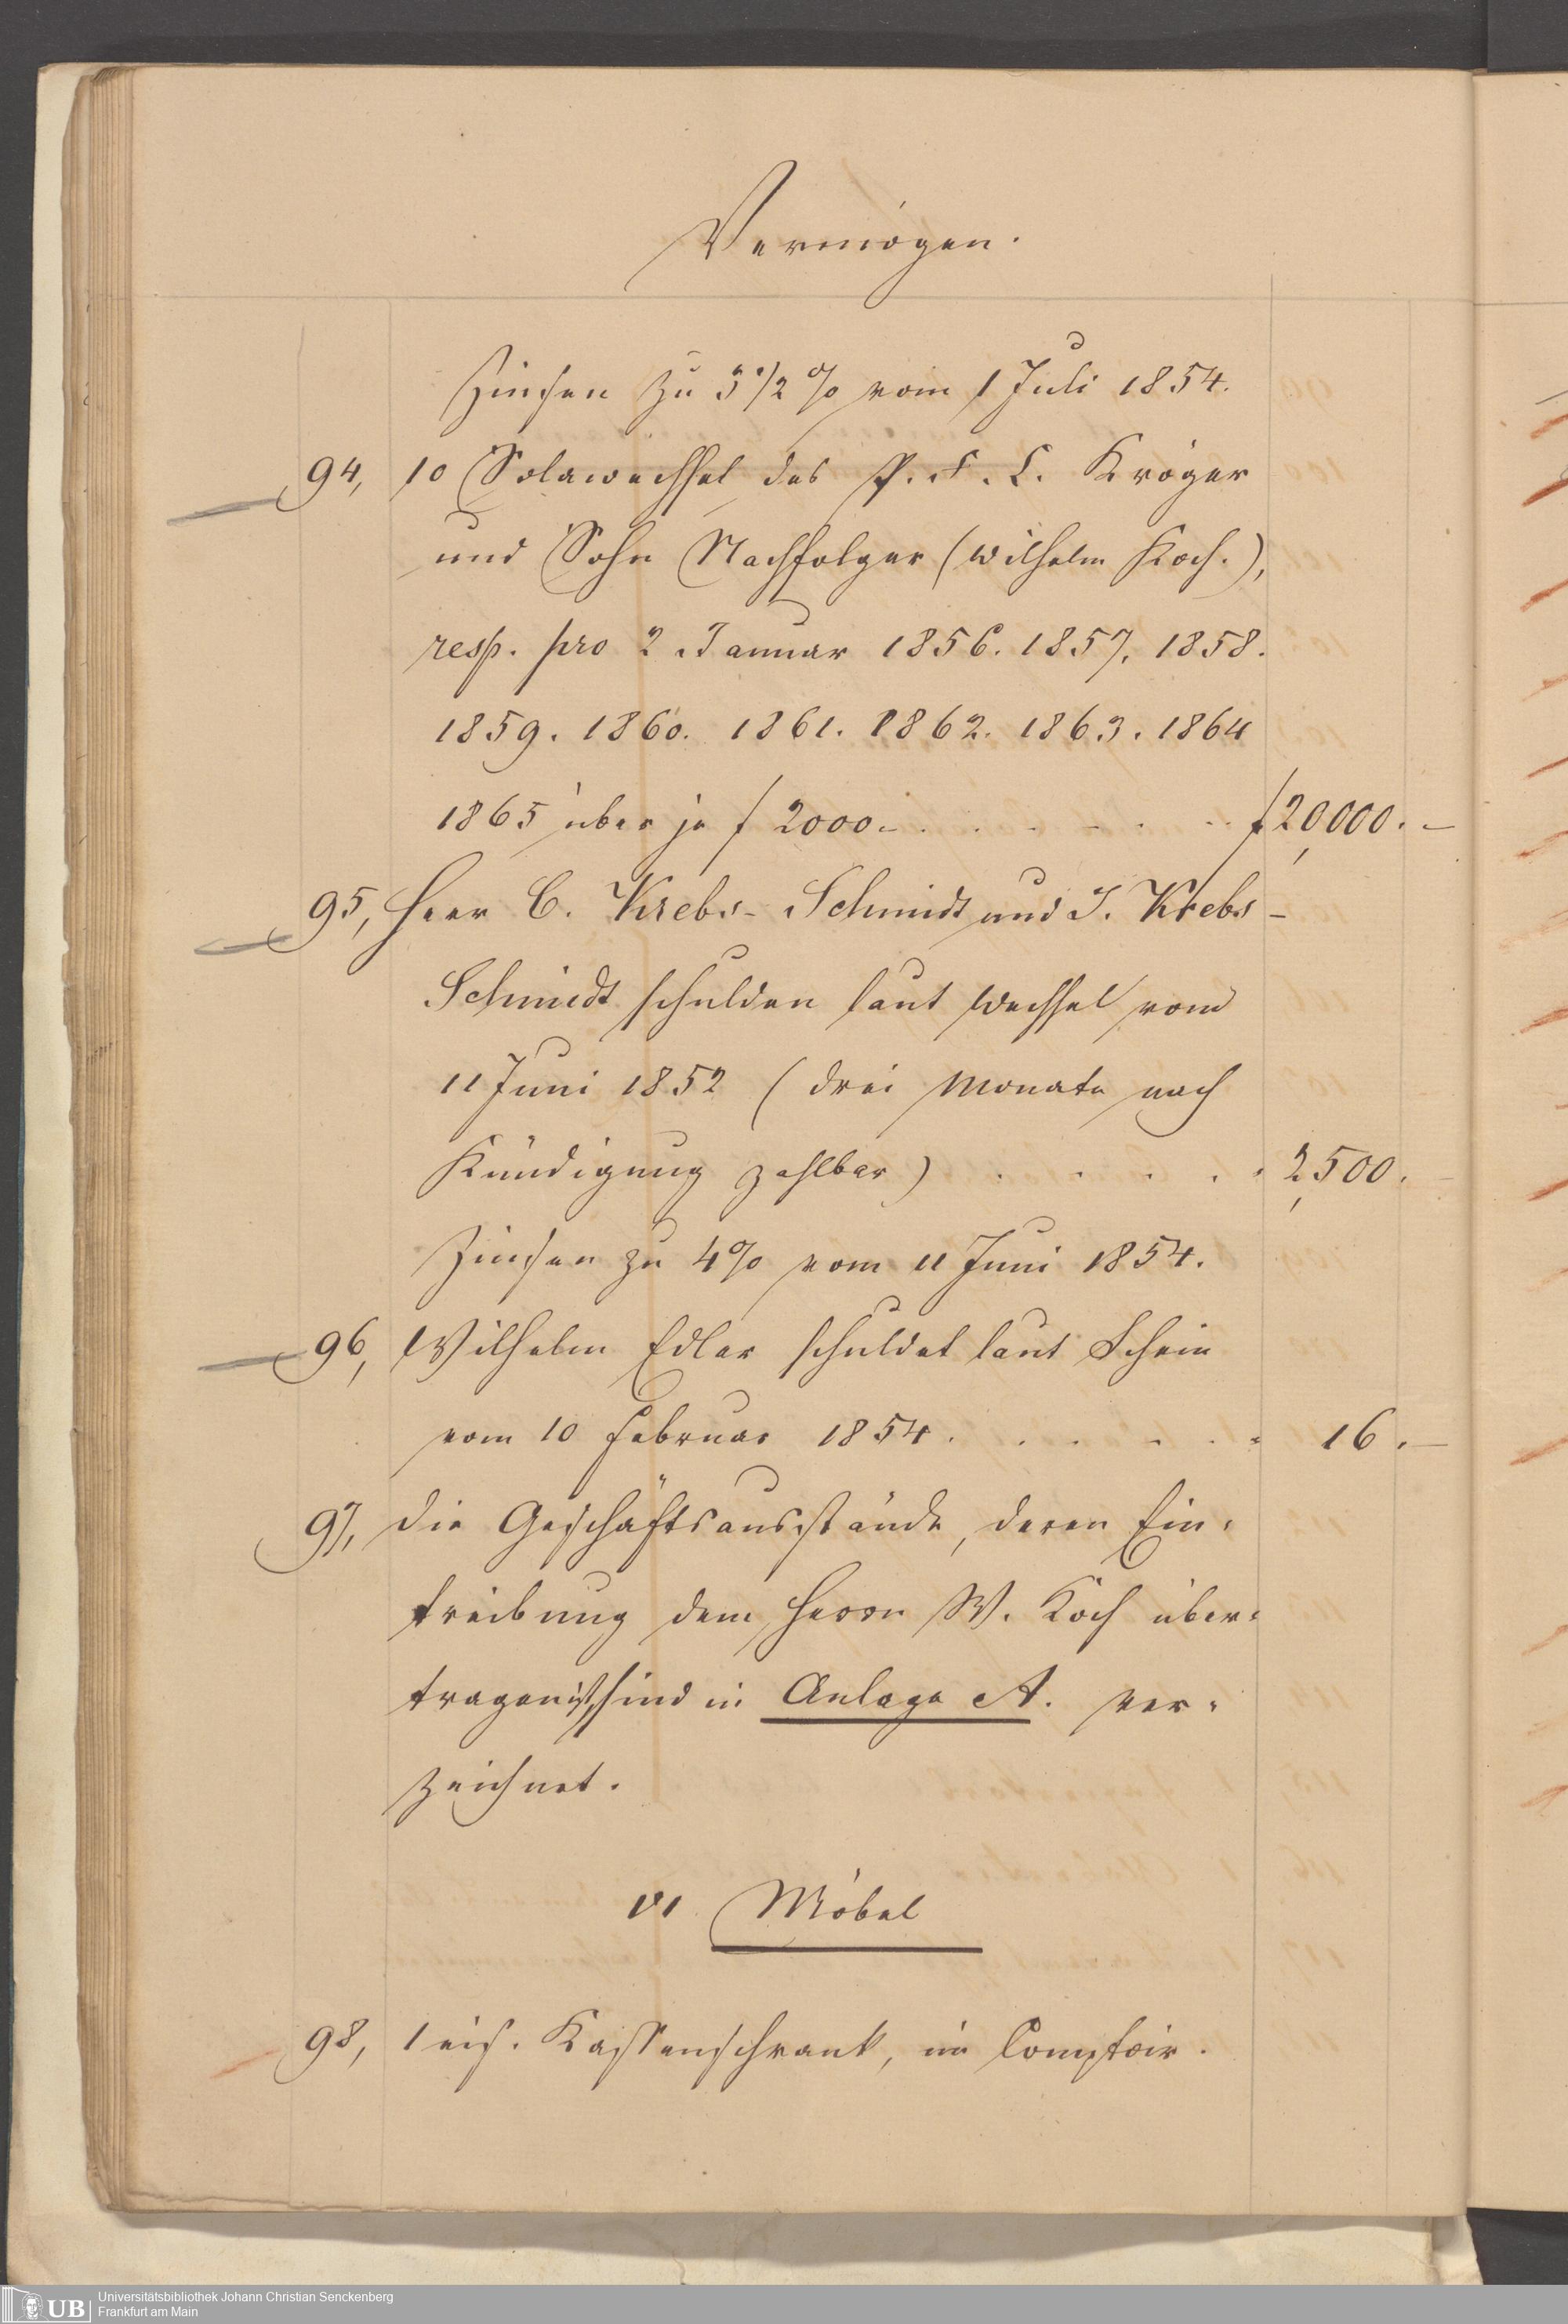 Vermögen.
Zinsen zu 3 1/2 % vom 1 Juli 1854.
94, 10 Solawechsel des P. F. C. Kröger
und Sohn Nachfolger (Wilhelm Koch.),
resp. pro 2 Januar 1856. 1857. 1858.
1859. 1860. 1861. 1862. 1863. 1864
1865 über je f 2000.- . . . . . . f 20,000. -
95, Herr C. Krebs-Schmidt und J. Krebs-
Schmidt schulden laut Wechsel vom
11 Juni 1852 (drei Monate nach
Kündigung zahlbar) . . . . . 2,500. -
Zinsen zu 4% vom 11 Juni 1854.
96, Wilhelm Edler schuldet laut Schein
vom 10 Februar 1854. . . . . . 16. -
97, die Geschäftsausstände, deren Ein-
treibung dem Herrn W. Koch über-
tragen ist, sind in Anlage A. ver-
zeichnet.
VI. Möbel
98, 1 eis. Kassenschrank, im Comptoir.
Universitätsbibliothek Johann Christian Senckenberg
UB Frankfurt am Main